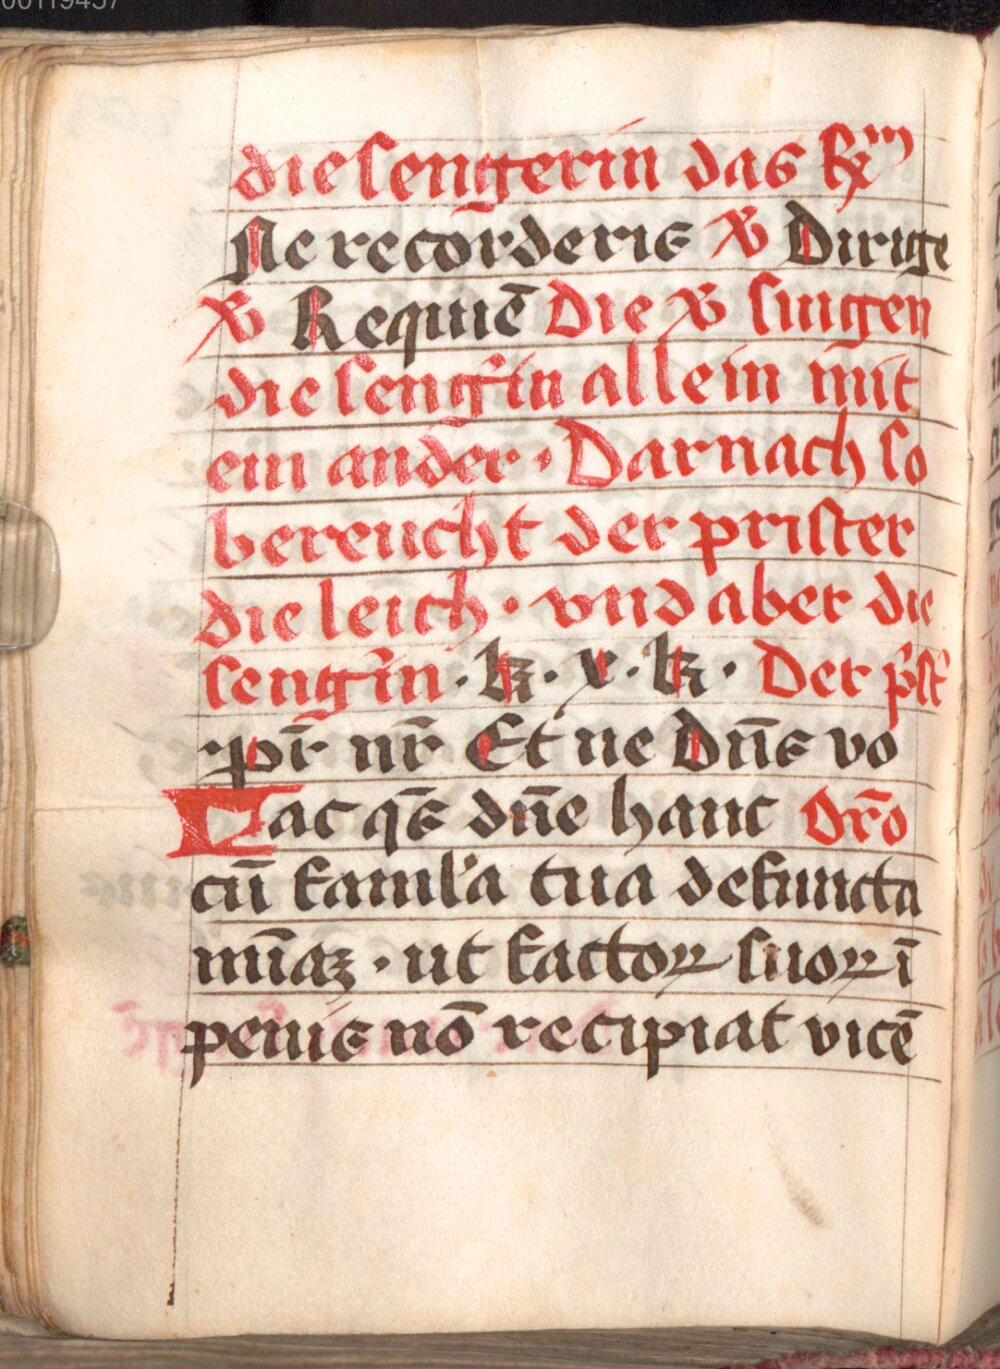 00119457
die sengerin das Rm̄
Ne recorderis ꝟ Dirige
ꝟ Requiē Die ꝟ singen
die seng̉in allein mit
ein ander · Darnach so
bereucht der prister
die leich · vnd aber die
seng̉in · k · x · k · Der p̉st̉
pr̄ nr̄ Et ne Dn̄s vo
Fac qs̄ dn̄e hanc Or̄o
cū faml̉a tua defuncta
mīaʒ · ut factoꝝ suoꝝ ī
penis nō recipiat vicē